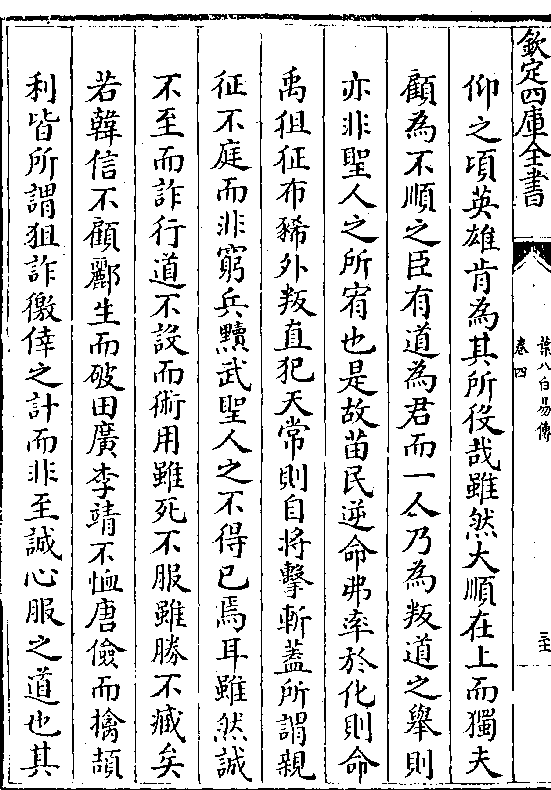 欽定四庫全書
葉八白易傳
卷四
仰之頃英雄肯為其所役哉雖然大順在上而獨夫
顧為不順之臣有道為君而一人乃為叛道之舉則
亦非聖人之所宥也是故苗民逆命弗率於化則命
禹徂征布豨外叛直犯天常則自將擊斬蓋所謂親
征不庭而非窮兵黷武聖人之不得已焉耳雖然誠
不至而詐行道不設而術用雖死不服雖勝不臧矣
若韓信不顧酈生而破田廣李靖不恤唐儉而擒頡
利皆所謂狙詐徼倖之計而非至誠心服之道也其